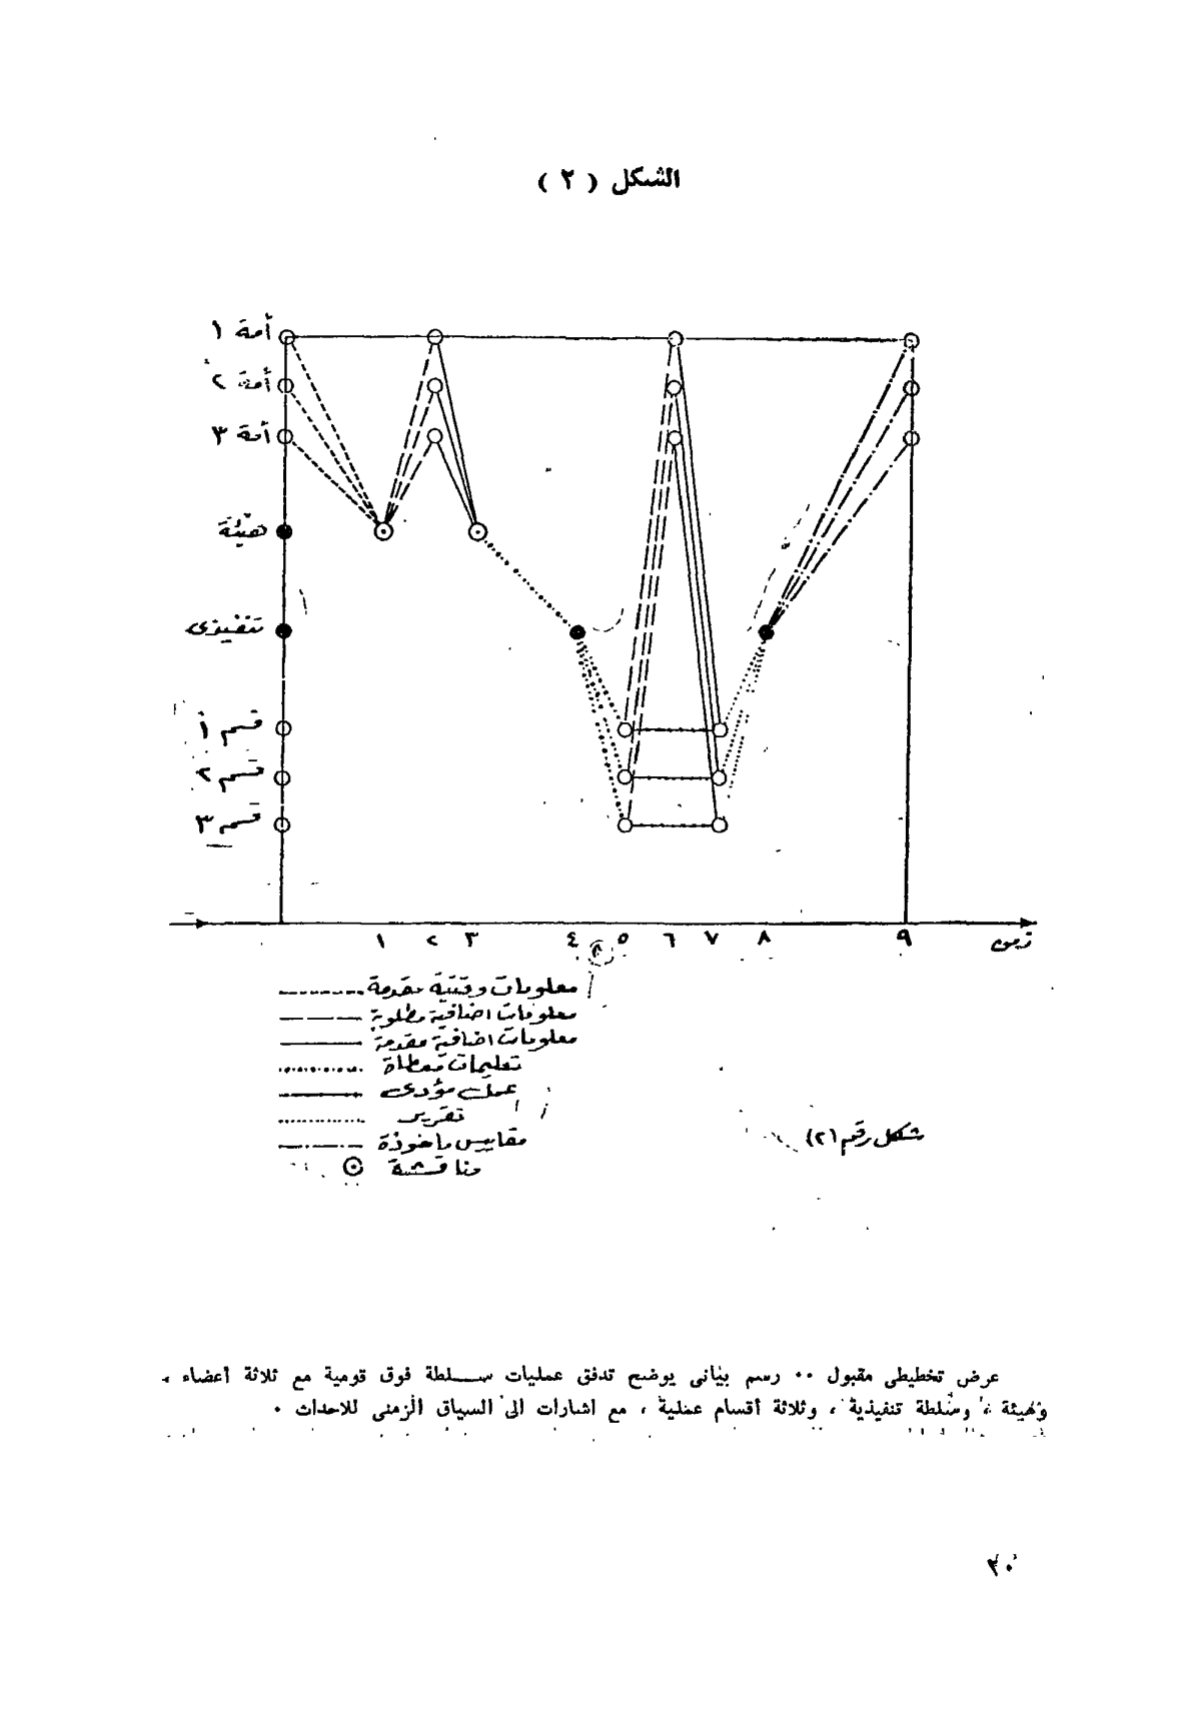 الشكل ( ٢ )
أمة ١
أمة ٢
أمة ٣
هيئة
تنفيذى
قسم ١
قسم ٢
قسم ٣
١ ٢ ٣ ٤ ٥ ٦ ٧ ٨ ٩ زمن
معلومات وقتية مقدمة
معلومات اضافية مطلوبة
معلومات اضافية مقدمة
تعليمات معطاة
عمل مؤدى
تقرير
مقاييس ماخوذة
مناقشة
شكل رقم (٢)
عرض تخطيطى مقبول ٠٠ رسم بيانى يوضح تدفق عمليات سلطة فوق قومية مع ثلاثة أعضاء ،
وهيئة ، وسلطة تنفيذية ، وثلاثة أقسام عملية ، مع اشارات الى السياق الزمنى للاحداث ٠
٢٠